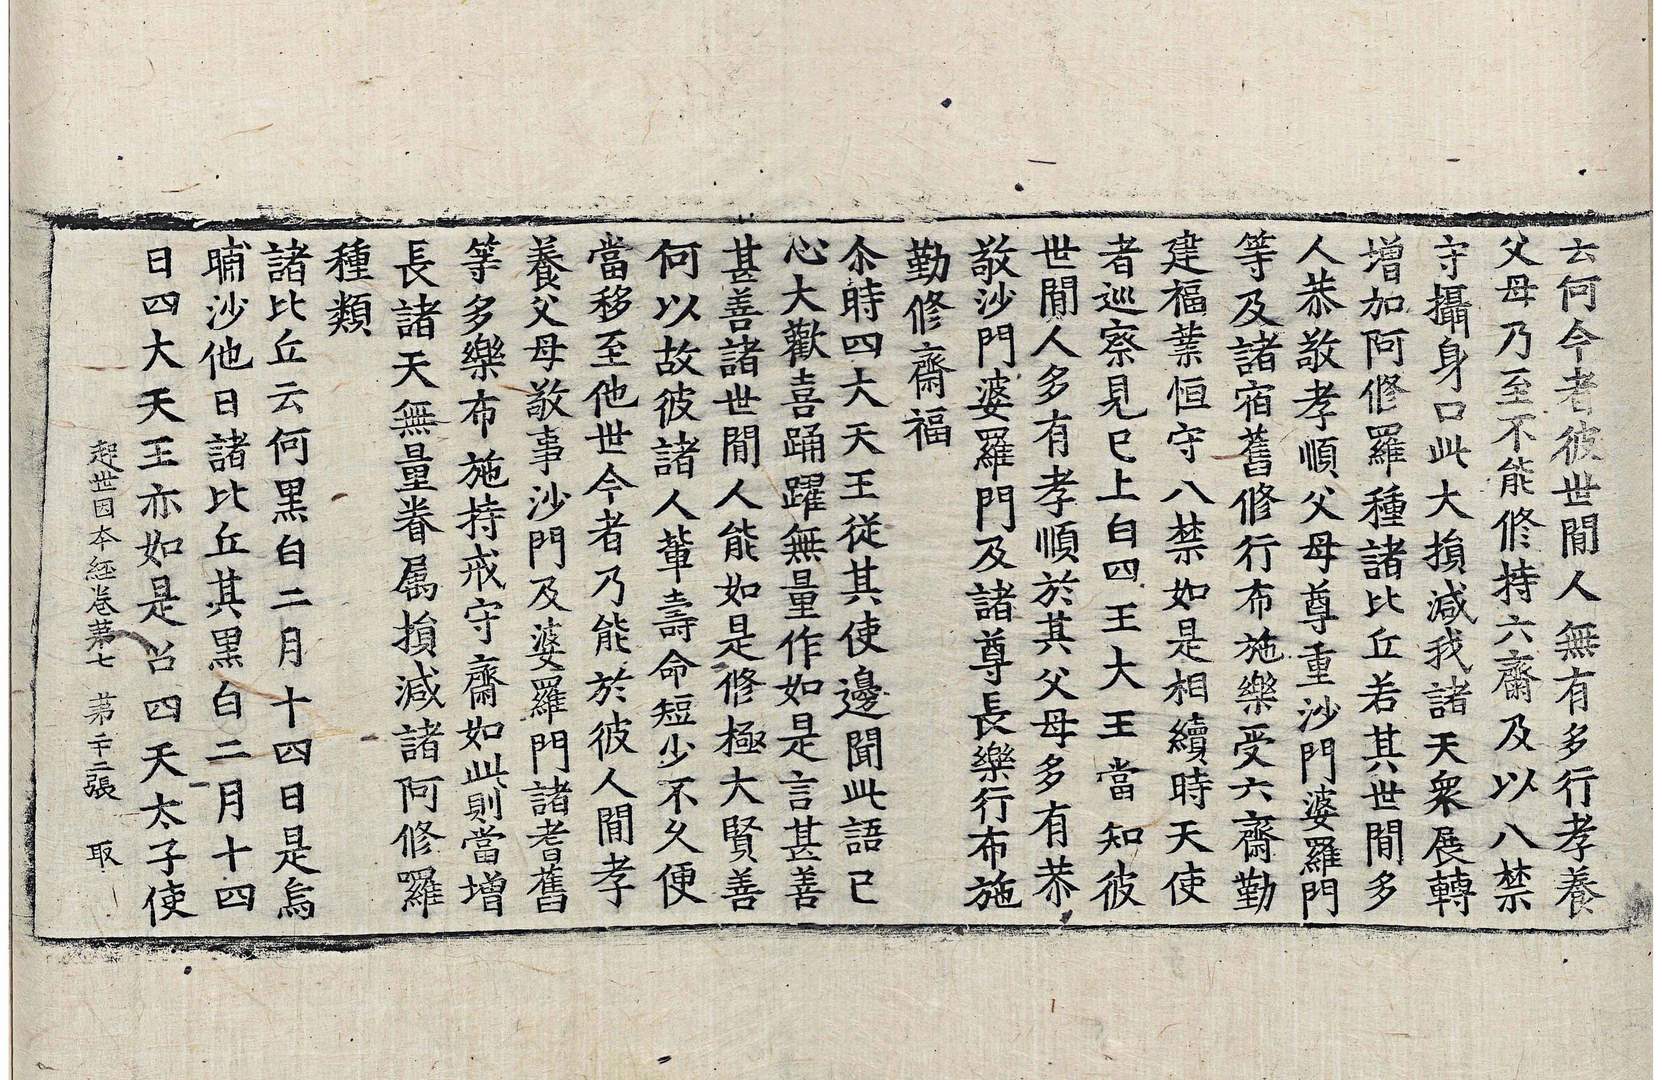 云何今者彼世間人無有多行孝養
父母乃至不能修持六齋及以八禁
守攝身口此大損減我諸天衆展轉
增加阿修羅種諸比丘若其世間多
人恭敬孝順父母尊重沙門婆羅門
等及諸宿舊修行布施樂受六齋勤
建福業恒守八禁如是相續時天使
者巡察見已上白四王大王當知彼
世間人多有孝順於其父母多有恭
敬沙門婆羅門及諸尊長樂行布施
勤修齋福
尒時四大天王從其使邊聞此語已
心大歡喜踊躍無量作如是言甚善
甚善諸世間人能如是修極大賢善
何以故彼諸人輩壽命短少不久便
當移至他世今者乃能於彼人間孝
養父母敬事沙門及婆羅門諸耆舊
等多樂布施持戒守齋如此則當增
長諸天無量眷属損減諸阿修羅
種類
諸比丘云何黑白二月十四日是烏
晡沙他日諸比丘其黑白二月十四
日四大天王亦如是召四天太子使
起世因本經卷第七 第二十二張 取